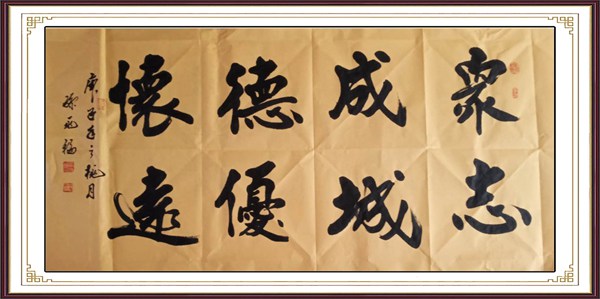 眾志
成城
德優
懷遠
庚子年之桃月